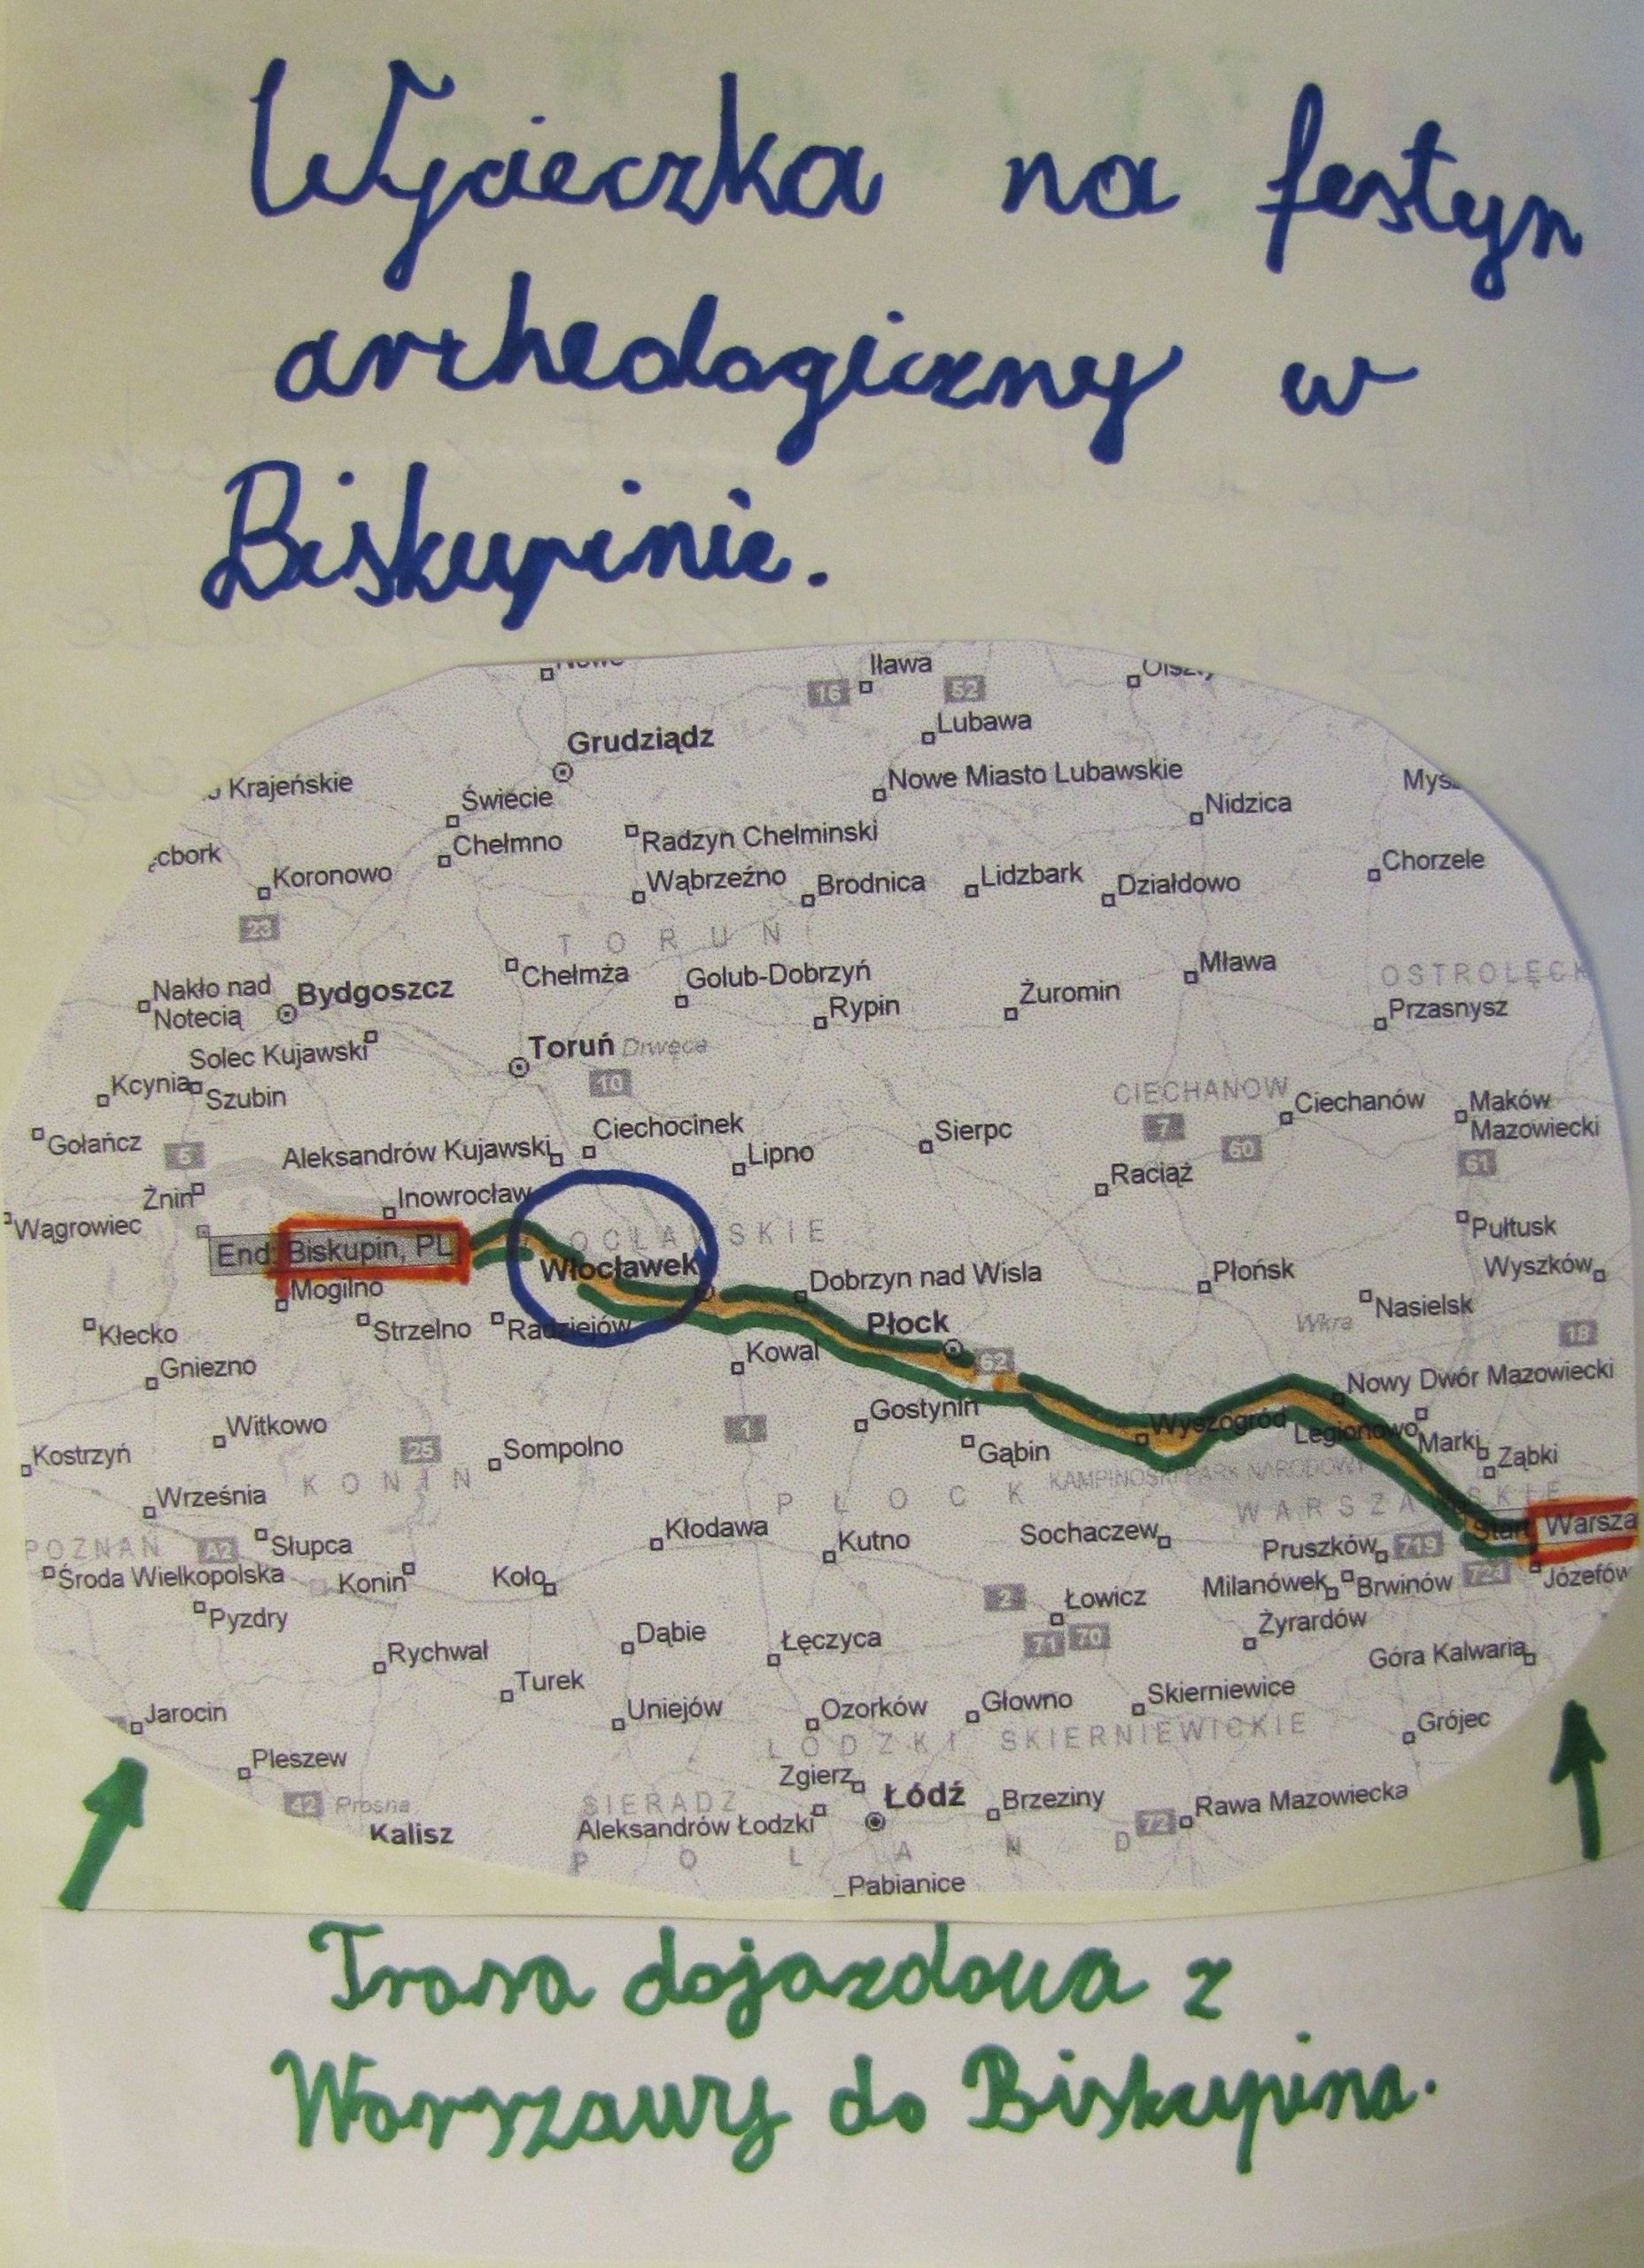 Wycieczka na festyn
archeologiczny w
Biskupinie.
Iława
16
52
Lubawa
Grudziądz
Krajeńskie
Świecie
Nowe Miasto Lubawskie
Nidzica
Chełmno
Radzyn Chelminski
Chorzele
Koronowo
Wąbrzeźno
Brodnica
Lidzbark
Działdowo
23
TORUŃ
Chełmża
Golub-Dobrzyń
Mława
Nakło nad
Notecią
Bydgoszcz
Rypin
Żuromin
Przasnysz
Solec Kujawski
Toruń
Drwęca
10
Kcynia
Szubin
CIECHANOW
Ciechanów
Maków
Mazowiecki
Gołańcz
5
Aleksandrów Kujawski
Ciechocinek
Lipno
Sierpc
7
60
61
Raciąż
Żnin
Inowrocław
Wągrowiec
Pułtusk
End: Biskupin, PL
Włocławek
Dobrzyn nad Wisla
Płońsk
Wyszków
Mogilno
Nasielsk
Wkra
18
Kłecko
Strzelno
Radziejów
Płock
62
Kowal
Gniezno
Nowy Dwór Mazowiecki
Witkowo
25
Sompolno
1
Gostynin
Gąbin
Wyszogród
Legionowo
Marki
Ząbki
Kostrzyń
KONIN
KAMPINOSKI PARK NARODOWY
Września
PŁOCK
Start
Warsza
POZNAŃ
A2
Słupca
Kłodawa
Kutno
Sochaczew
Pruszków
719
Środa Wielkopolska
Konin
Koło
Milanówek
Brwinów
724
Józefów
Pyzdry
2
Łowicz
Żyrardów
Rychwał
Dąbie
Łęczyca
71
70
Góra Kalwaria
Turek
Uniejów
Ozorków
Głowno
Skierniewice
Jarocin
ŁÓDZKI
SKIERNIEWICKIE
Grójec
Pleszew
Zgierz
42
Prosna
SIERADZ
Łódź
Brzeziny
72
Rawa Mazowiecka
Kalisz
Aleksandrów Łodzki
POLAND
Pabianice
Trasa dojazdowa z
Warszawy do Biskupina.